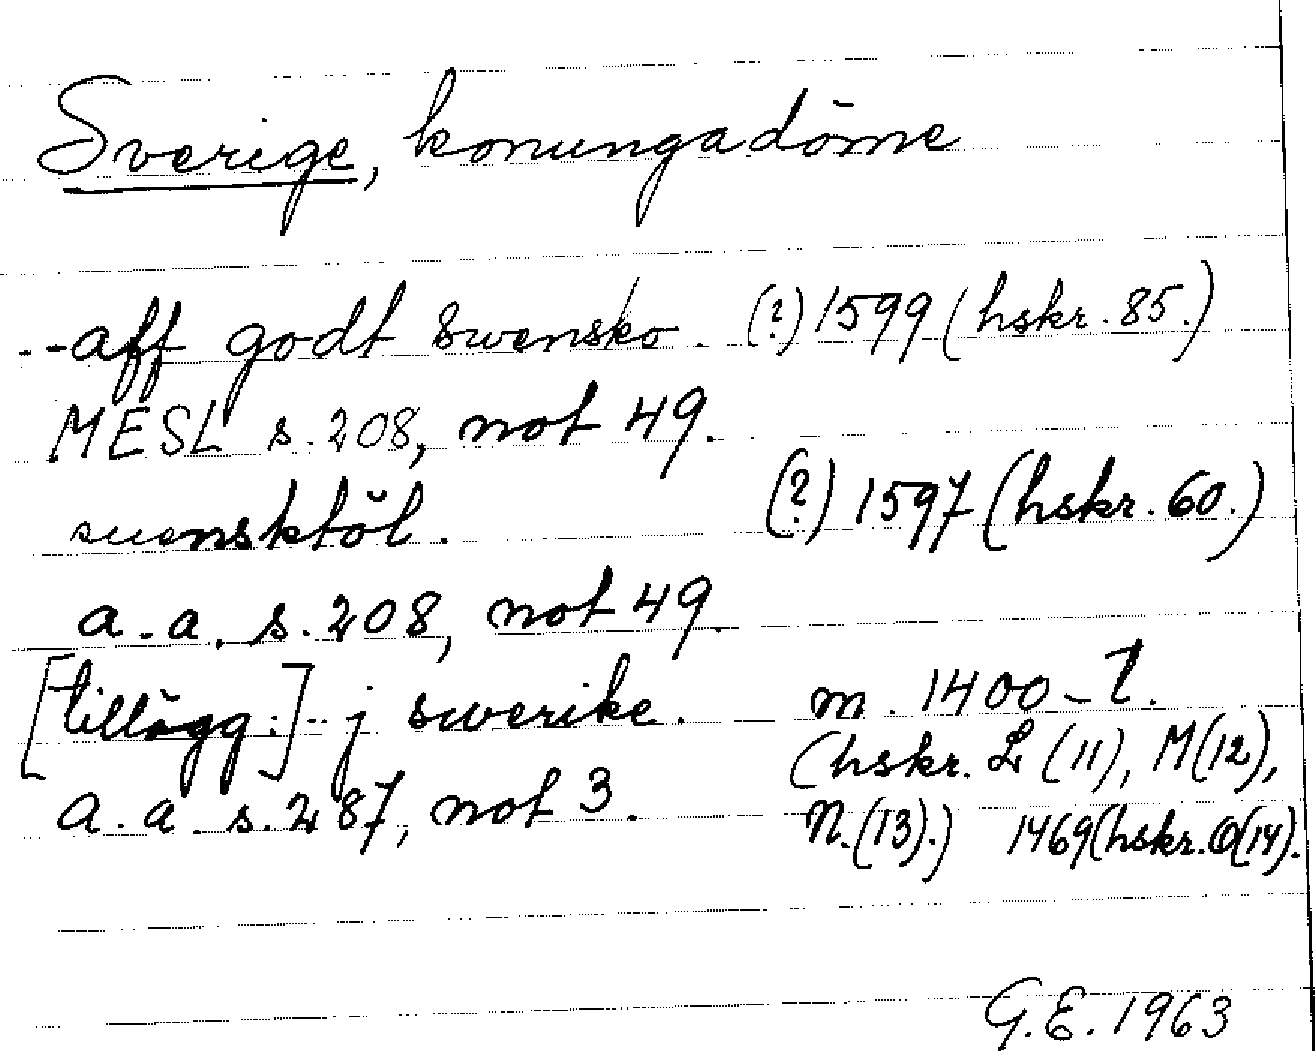 Sverige, konungadöme
--aff godt swensko. (?) 1599 (hskr. 85.)
MESL s. 208, not 49.
suensktöl. (?) 1597 (hskr. 60.)
a.a. s. 208, not 49.
[tillägg:]-- j swerike. m. 1400-t.
(hskr. L (11), M(12),
a.a. s. 287, not 3. N.(13).) 1469(hskr. O(14).
G.E. 1963